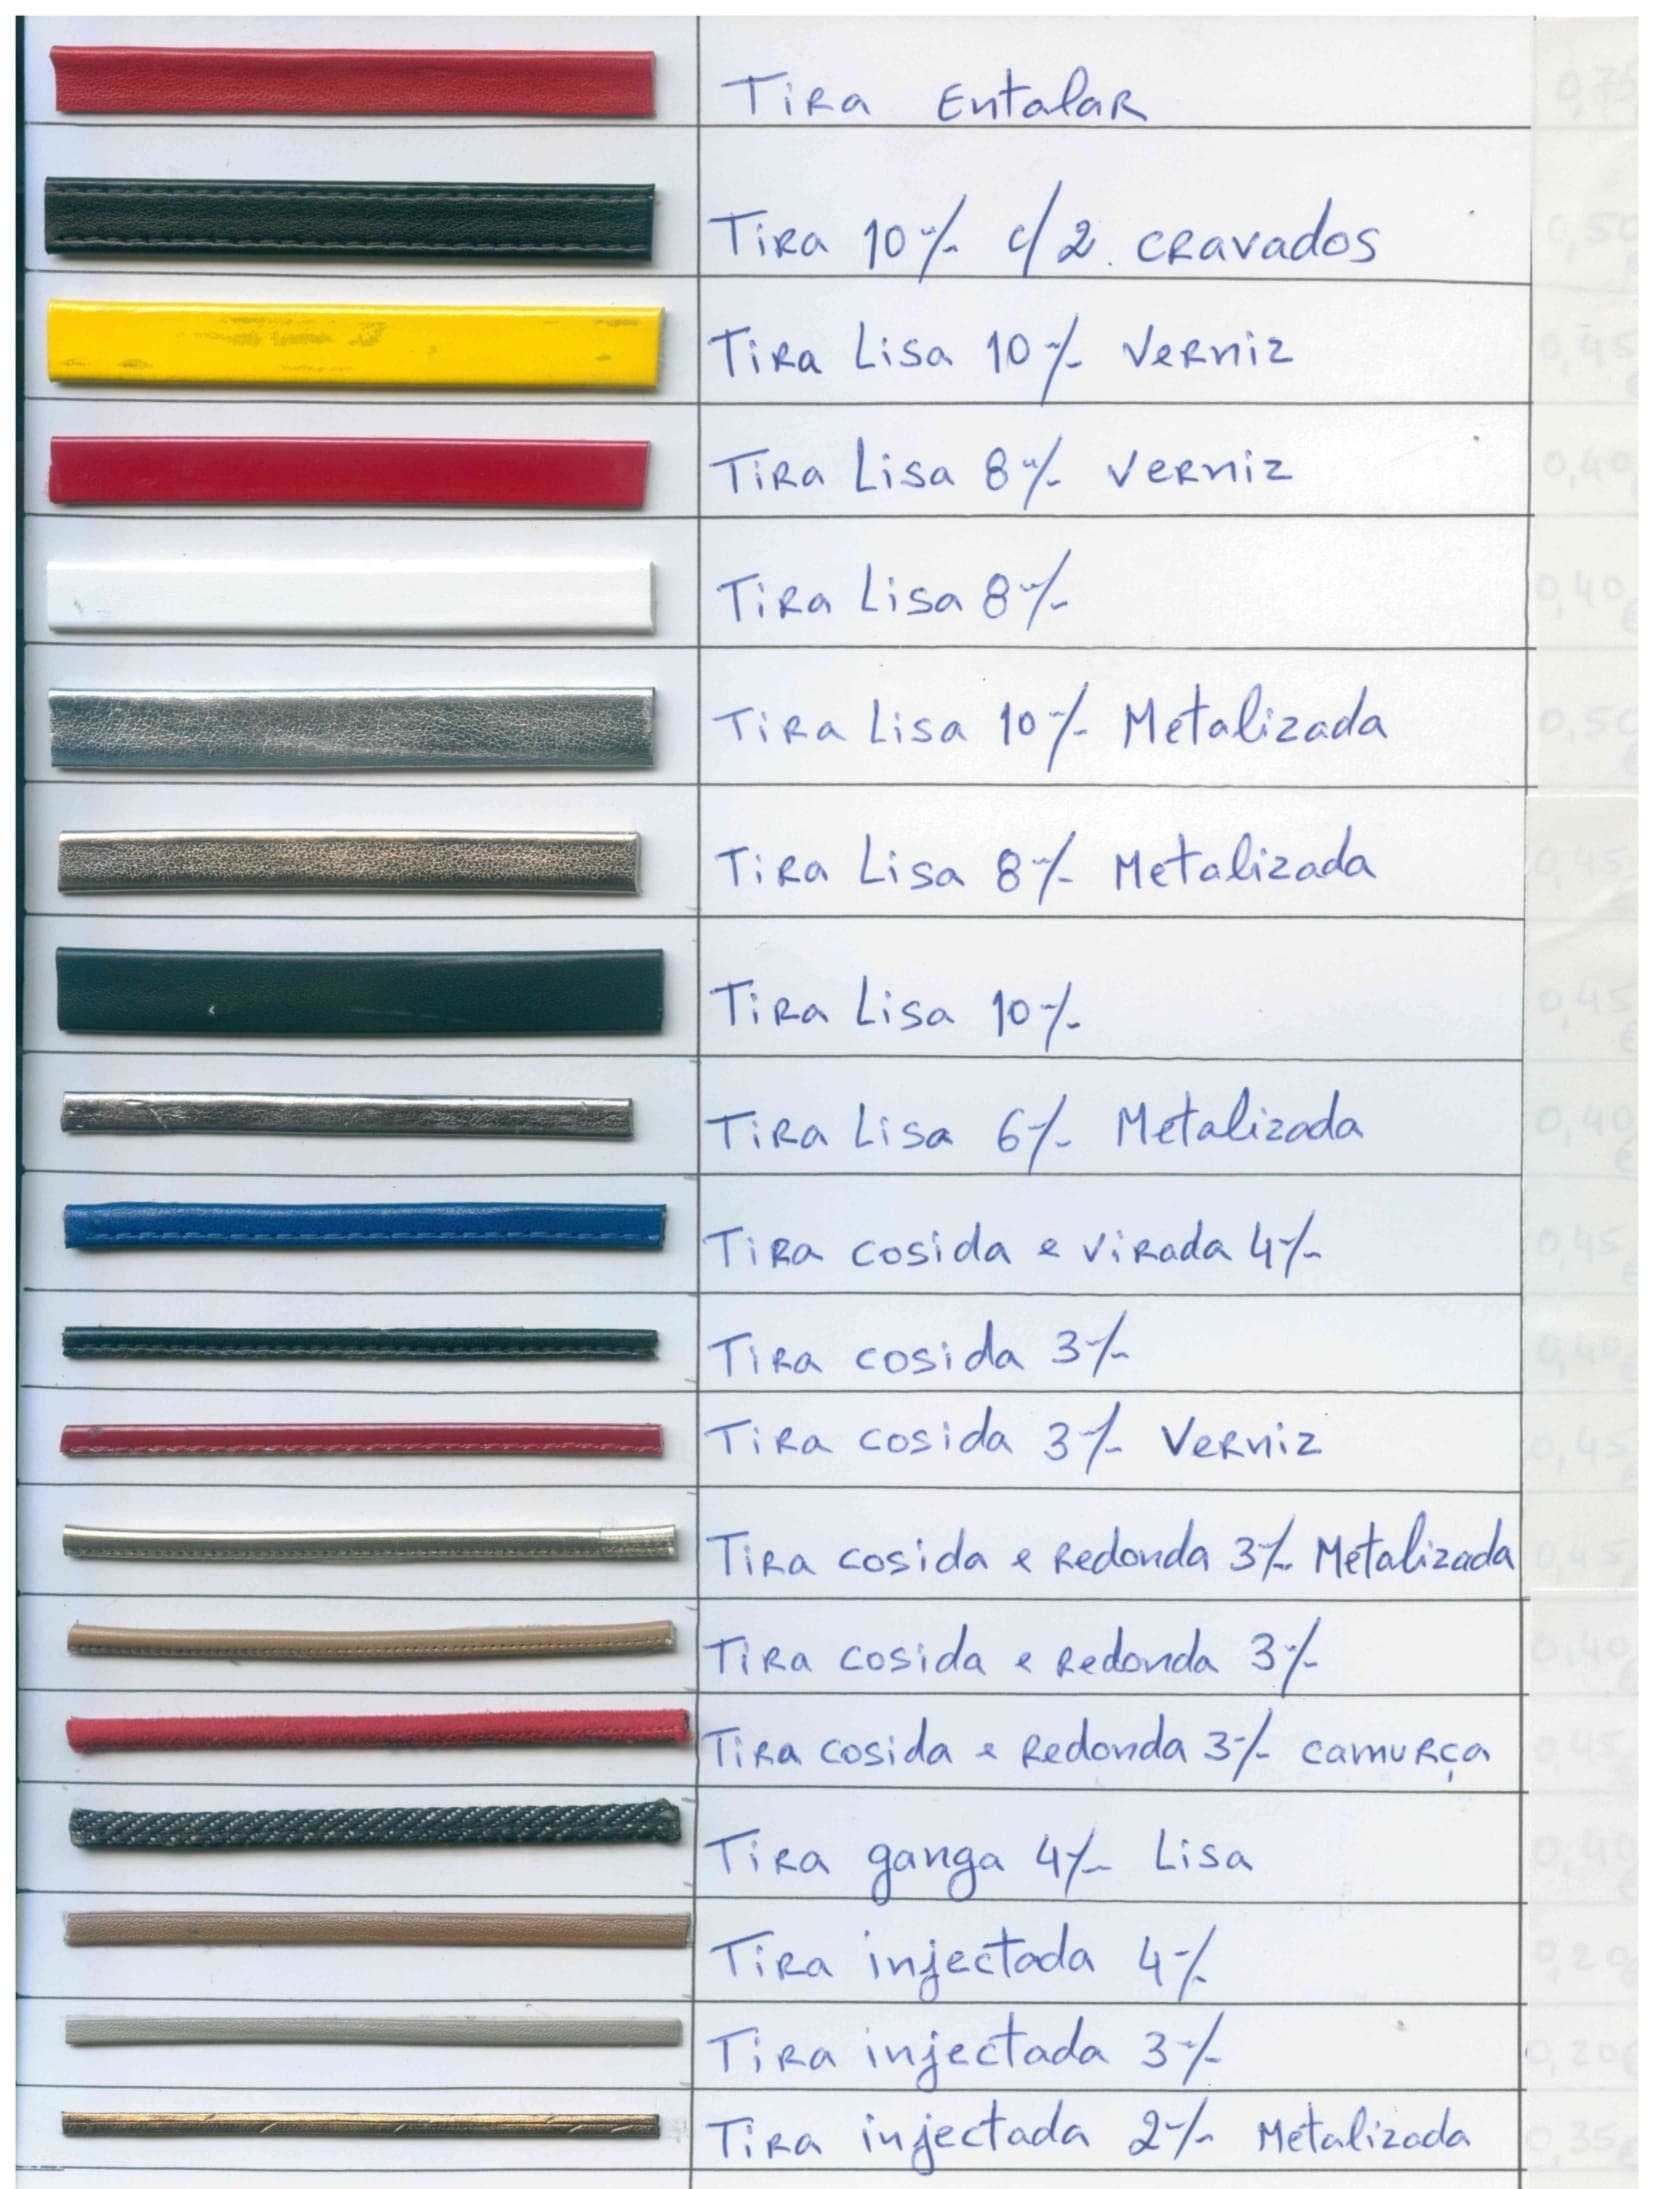 Tira Entalar 0,75
Tira 10 % c/2 cravados 0,50
Tira Lisa 10 % Verniz 0,45
Tira Lisa 8 % Verniz 0,40
Tira Lisa 8 % 0,40 €
Tira Lisa 10 % Metalizada 0,50 €
Tira Lisa 8 % Metalizada 0,45
Tira Lisa 10 % 0,45 €
Tira Lisa 6 % Metalizada 0,40 €
Tira cosida e virada 4 % 0,45 €
Tira cosida 3 % 0,40 €
Tira cosida 3 % Verniz 0,45 €
Tira cosida e redonda 3 % Metalizada 0,45
Tira cosida e redonda 3 % 0,40 €
Tira cosida e redonda 3 % camurça 0,45
Tira ganga 4 % Lisa 0,40 €
Tira injectada 4 % 0,20 €
Tira injectada 3 % 0,20 €
Tira injectada 2 % Metalizada 0,35 €